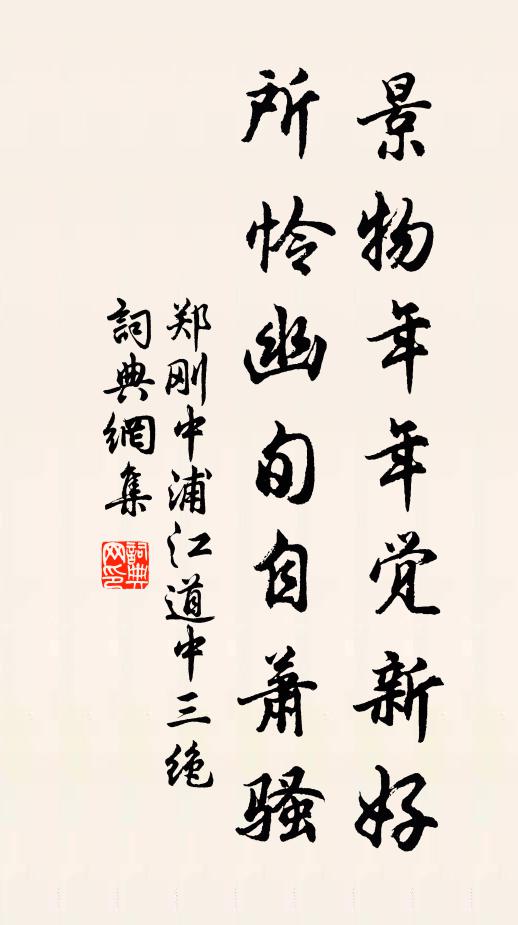 景物年年觉新好
所怜幽旬自萧骚
郑刚中浦江道中三绝
詞典網集
詞典网印